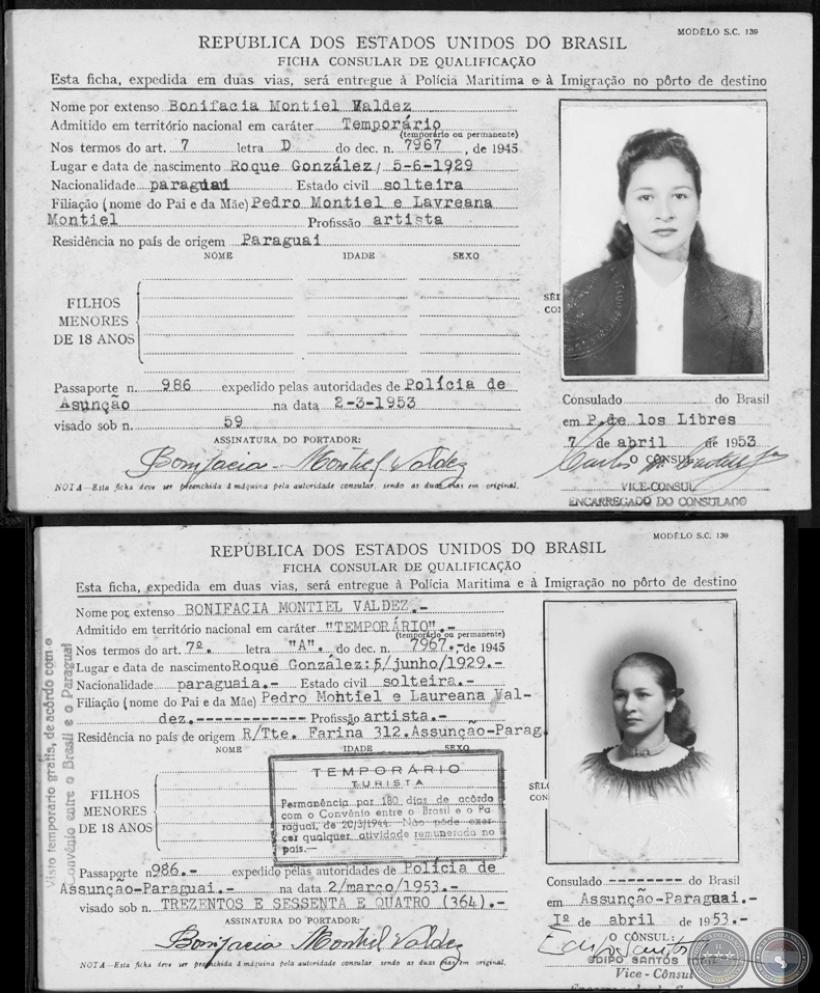 MODÊLO S.C. 139
REPÚBLICA DOS ESTADOS UNIDOS DO BRASIL
FICHA CONSULAR DE QUALIFICAÇÃO
Esta ficha, expedida em duas vias, será entregue à Polícia Marítima e à Imigração no pôrto de destino
Nome por extenso Bonifacia Montiel Valdez
Admitido em território nacional em caráter Temporário
(temporário ou permanente)
Nos termos do art. 7 letra D do dec. n. 7967, de 1945
Lugar e data de nascimento Roque González/ 5-6-1929
Nacionalidade paraguai Estado civil solteira
Filiação (nome do Pai e da Mãe) Pedro Montiel e Lavreana
Montiel Profissão artista
Residência no país de origem Paraguai
NOME IDADE SEXO
FILHOS
MENORES
DE 18 ANOS
Passaporte n. 986 expedido pelas autoridades de Polícia de
Asunção na data 2-3-1953
visado sob n. 59
ASSINATURA DO PORTADOR:
Bonifacia Montiel Valdez
NOTA—Esta ficha deve ser preenchida à máquina pela autoridade consular, sendo as duas vias em original.
Consulado do Brasil
em P. de los Libres
7 de abril de 1953
O CÔNSUL
VICE-CONSUL
ENCARREGADO DO CONSULADO
MODÊLO S.C. 139
REPÚBLICA DOS ESTADOS UNIDOS DO BRASIL
FICHA CONSULAR DE QUALIFICAÇÃO
Esta ficha, expedida em duas vias, será entregue à Polícia Marítima e à Imigração no pôrto de destino
Nome por extenso BONIFACIA MONTIEL VALDEZ.-
Admitido em território nacional em caráter "TEMPORÁRIO".-
(temporário ou permanente)
Nos termos do art. 7º. letra "A". do dec. n. 7967.-, de 1945
Lugar e data de nascimento Roque González:5/junho/1929.-
Nacionalidade paraguaia.- Estado civil solteira.-
Filiação (nome do Pai e da Mãe) Pedro Montiel e Laureana Val-
dez.------------ Profissão artista.-
Residência no país de origem R/Tte. Farina 312.Assunção-Parag
NOME IDADE SEXO
FILHOS
MENORES
DE 18 ANOS
TEMPORÁRIO
TURISTA
Permanência por 180 dias de acôrdo
com o Convênio entre o Brasil e o Pa
raguai, de 20/3/1944. Não pode exer-
cer qualquer atividade remunerada no
país.—
Passaporte n. 986.- expedido pelas autoridades de Polícia de
Assunção-Paraguai.- na data 2/março/1953.-
visado sob n. TREZENTOS E SESSENTA E QUATRO (364).-
ASSINATURA DO PORTADOR:
Bonifacia Montiel Valdez
NOTA—Esta ficha deve ser preenchida à máquina pela autoridade consular, sendo as duas vias em original.
Visto temporário gratis, de acôrdo com o
Convênio entre o Brasil e o Paraguai
Consulado -------- do Brasil
em Assunção-Paraguai.-
Iº de abril de 1953.-
O CÔNSUL:
EDIPO SANTOS
Vice-Cônsul